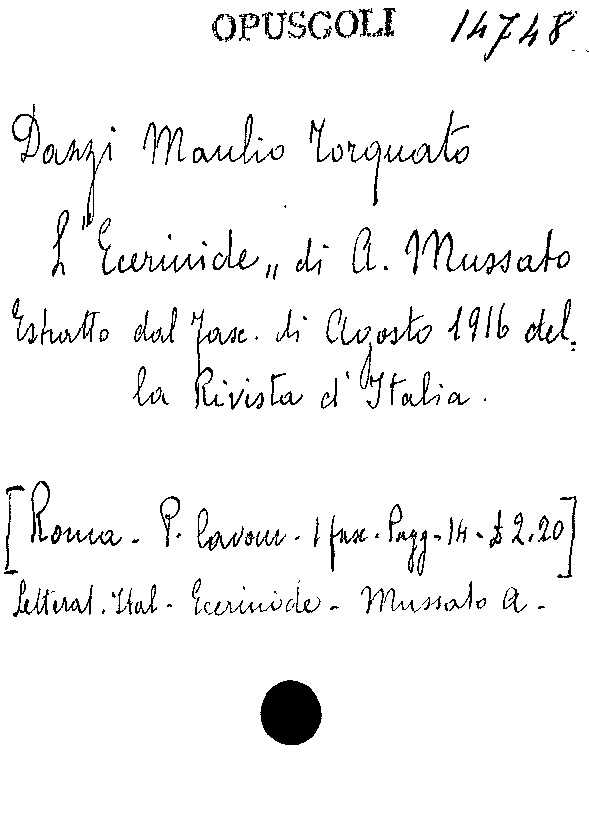 OPUSCOLI 14748
Dazzi Manlio Torquato
L'"Ecerinide„ di A. Mussato
Estratto dal fasc. di Agosto 1916 del-
la Rivista d'Italia.
[Roma - P. Cavour - 1 fasc. Pagg. 14 - £ 2.20]
Letterat. Ital - Ecerinide - Mussato A -